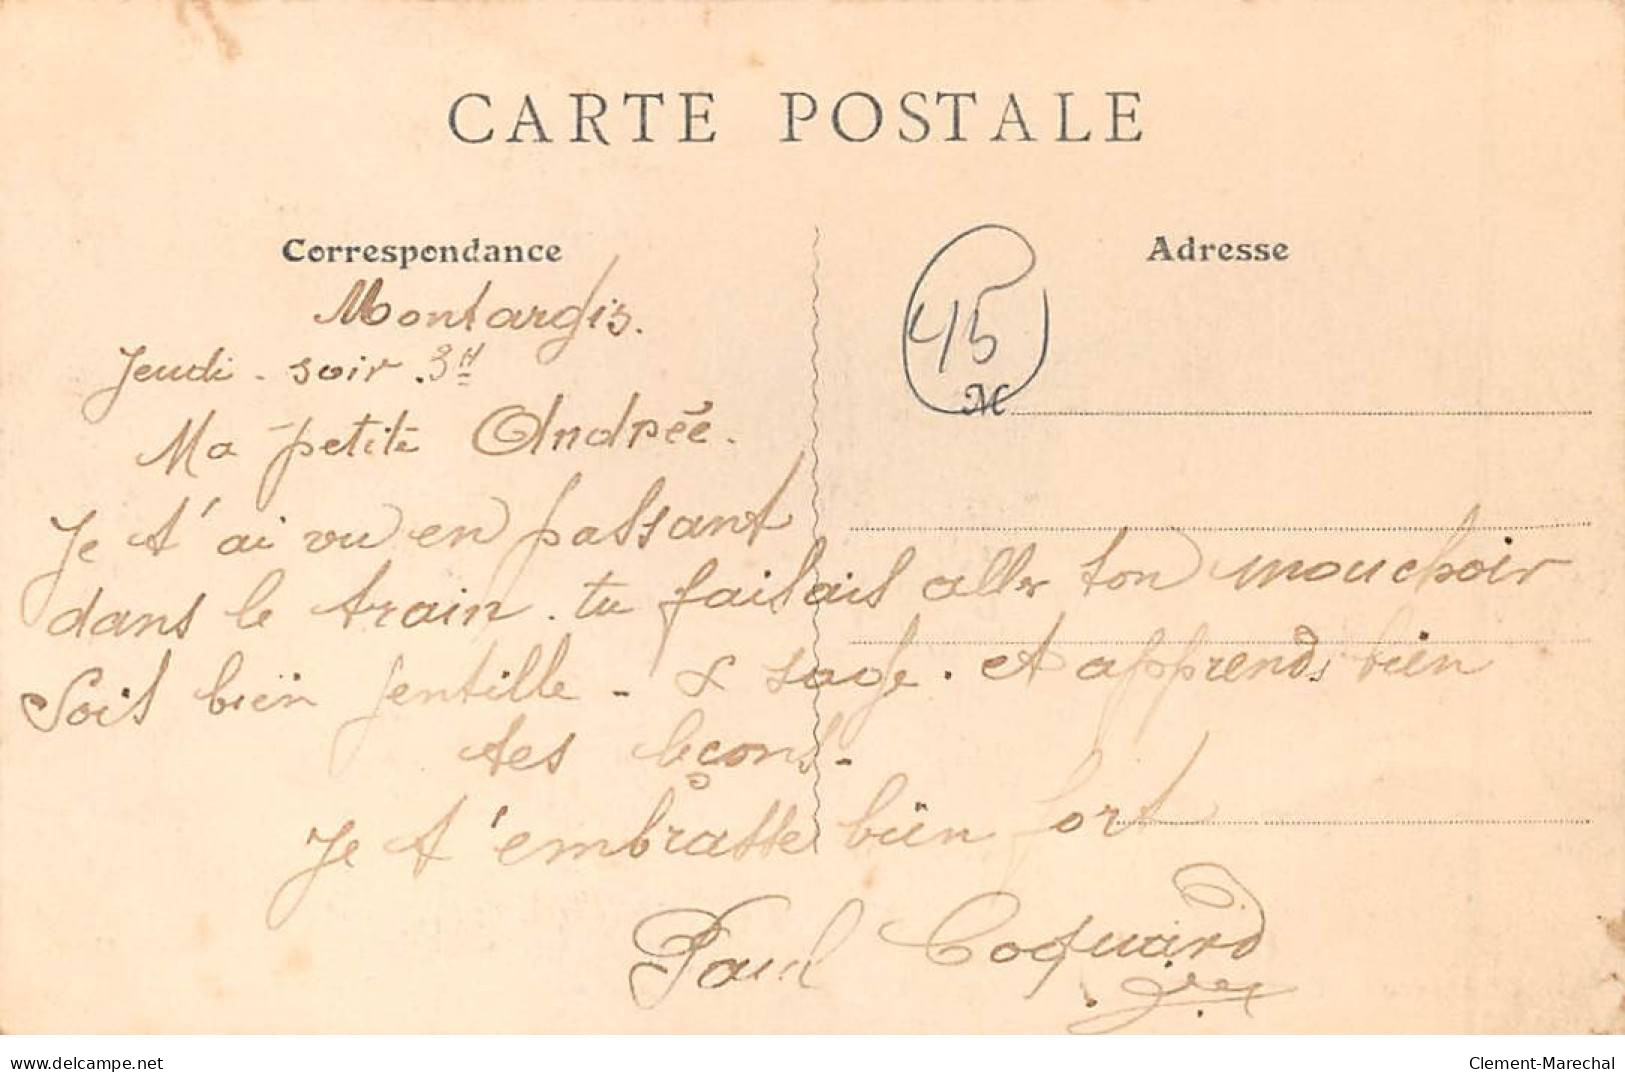 CARTE POSTALE
Correspondance
Adresse
45
M
Montargis.
Jeudi - soir. 3H
Ma petite Andrée.
Je t'ai vu en passant
dans le train. tu faisais aller ton mouchoir
Sois bien gentille - & sage. et apprends bien
tes leçons.
Je t'embrasse bien fort
Paul Coquard
www.delcampe.net
Clement-Marechal